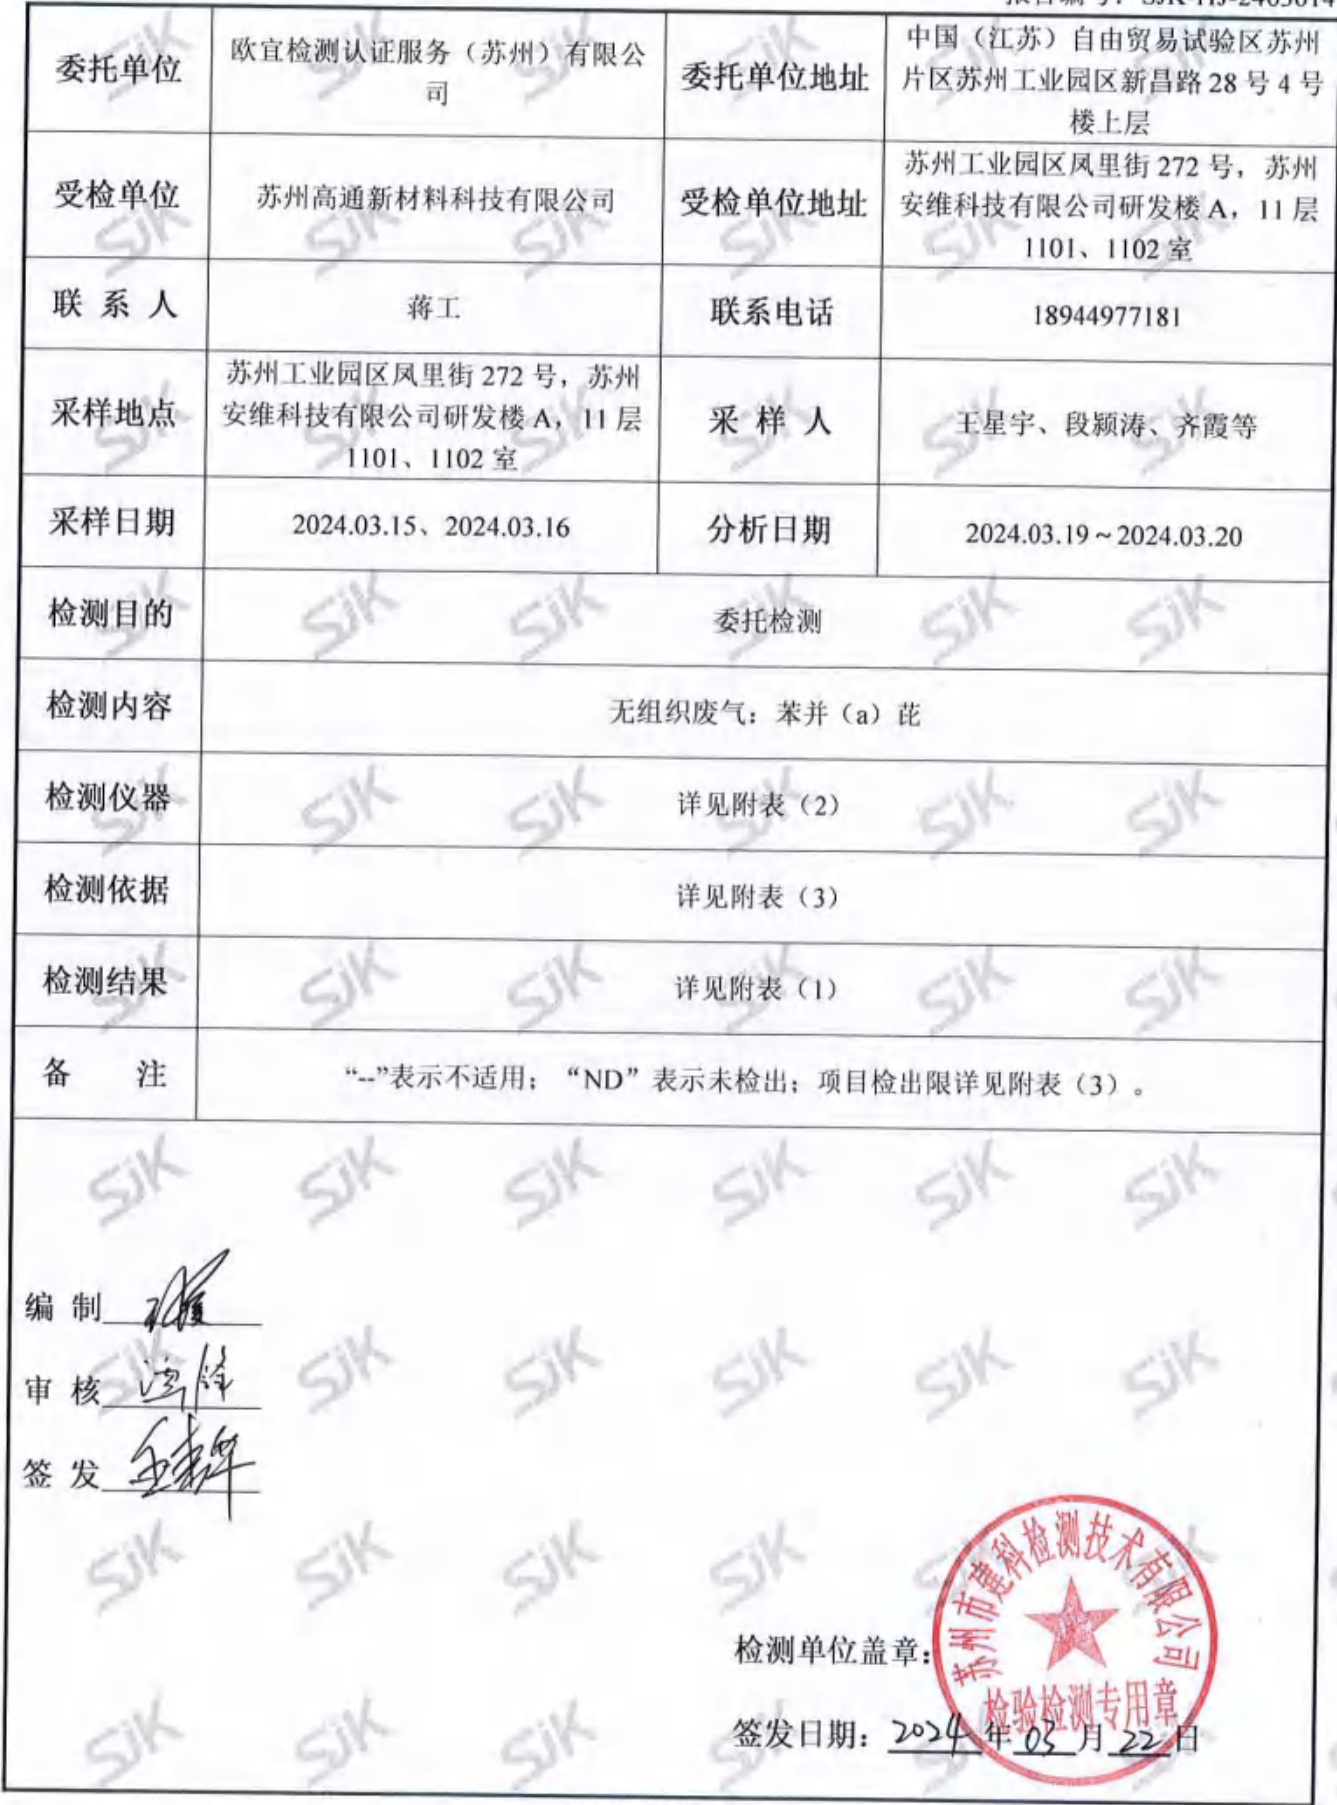 委托单位
欧宜检测认证服务（苏州）有限公
司
委托单位地址
中国（江苏）自由贸易试验区苏州
片区苏州工业园区新昌路 28 号 4 号
楼上层
受检单位
苏州高通新材料科技有限公司
受检单位地址
苏州工业园区凤里街 272 号，苏州
安维科技有限公司研发楼 A，11 层
1101、1102 室
联 系 人
蒋工
联系电话
18944977181
采样地点
苏州工业园区凤里街 272 号，苏州
安维科技有限公司研发楼 A，11 层
1101、1102 室
采 样 人
王星宇、段颖涛、齐霞等
采样日期
2024.03.15、2024.03.16
分析日期
2024.03.19～2024.03.20
检测目的
委托检测
检测内容
无组织废气：苯并（a）芘
检测仪器
详见附表（2）
检测依据
详见附表（3）
检测结果
详见附表（1）
备 注
“--”表示不适用；“ND”表示未检出；项目检出限详见附表（3）。
编 制
审 核
签 发
苏州市建科检测技术有限公司
检验检测专用章
检测单位盖章：
签发日期：2024 年 03 月 22 日
SJK